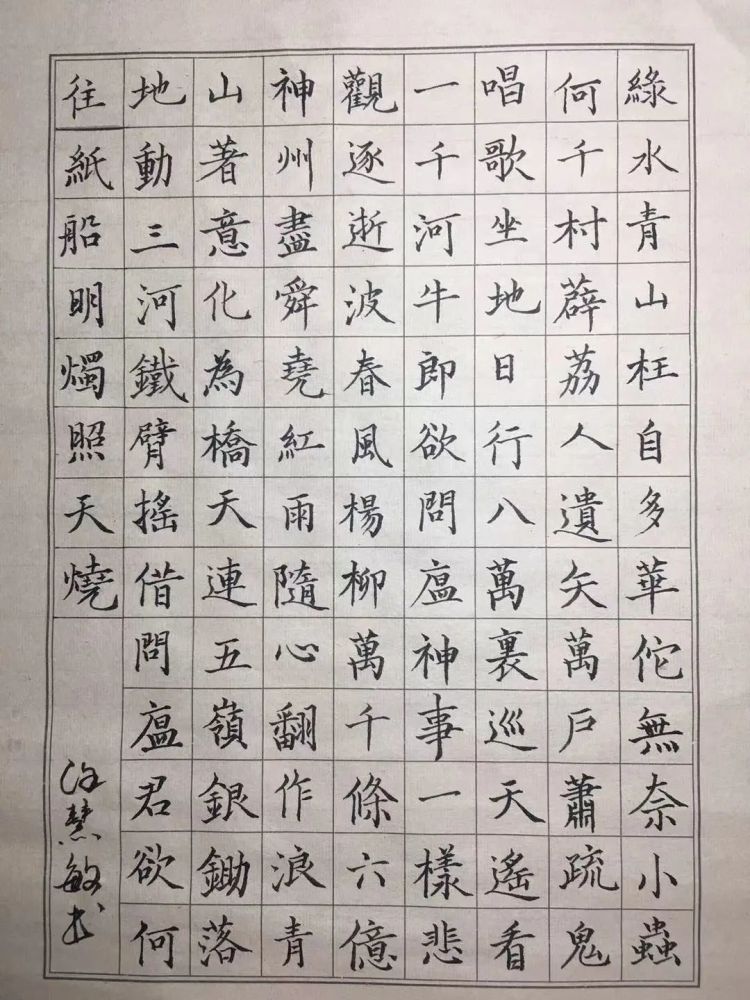 綠水青山枉自多華佗無奈小蟲
何千村薜荔人遺矢萬戶蕭疏鬼
唱歌坐地日行八萬裏巡天遙看
一千河牛郎欲問瘟神事一樣悲
觀逐逝波春風楊柳萬千條六億
神州盡舜堯紅雨隨心翻作浪青
山著意化為橋天連五嶺銀鋤落
地動三河鐵臂搖借問瘟君欲何
往紙船明燭照天燒
许慧敏书